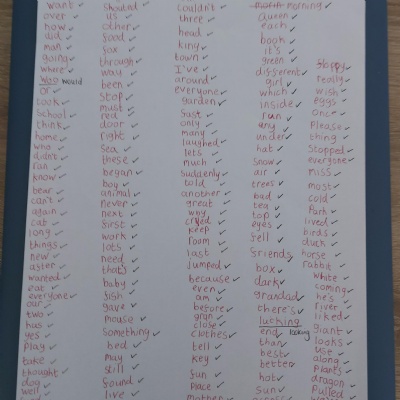 want
over
how
did
man
going
where
Woo would
or
took
school
think
home
who
didn't
ran
know
bear
can't
again
cat
long
things
new
after
wanted
eat
everyone
our
two
has
yes
play
take
thought
dog
well
should
us
other
food
fox
through
way
been
stop
must
red
door
right
sea
these
began
boy
animal
never
next
first
work
lots
need
that's
baby
fish
gave
mouse
something
bed
may
still
found
live
couldn't
three
head
king
town
I've
around
everyone
garden
fast
only
many
laughed
let's
much
suddenly
told
another
great
why
cried
keep
room
last
jumped
because
even
am
before
gran
close
clothes
tell
key
fun
place
mother
morning
Queen
each
book
it's
green
different
girl
which
inside
run
any
under
hat
snow
air
trees
bad
tea
top
eyes
fell
friends
box
dark
grandad
there's
lucking
end looking
than
best
better
hot
sun
floppy
really
wish
eggs
once
Please
thing
stopped
everyone
miss
most
cold
Park
lived
birds
duck
horse
rabbit
white
coming
he's
river
liked
giant
looks
use
along
plants
dragon
Pulled